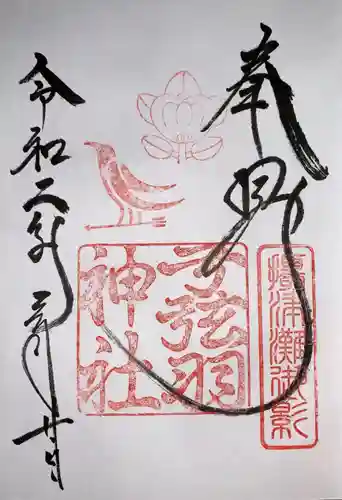 奉拝
摂津灘御影
弓弦羽
神社
令和二年二月廿日